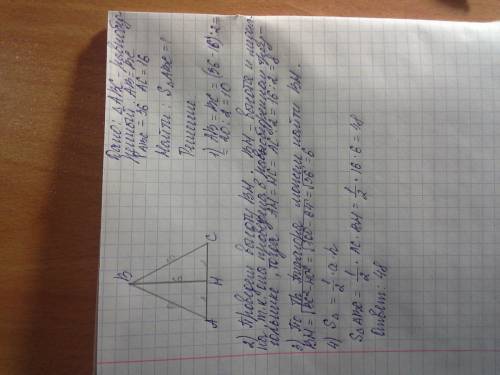 Дано: △ABC - равнобед-
ренный AB=BC
P ABC = 36 AC = 16
Найти: S△ABC = ?
Решение
1) AB = BC = (36-16):2 =
= 20:2 = 10
B
6
A H C
2) Проведём высоту BH. BH - высота и медиа-
на, т.к. она проведена в равнобедренном треу-
гольнике, тогда AH = HC = AC:2 = 16:2 = 8
3) По тр. Пифагора можем найти BH.
BH = √BC²-HC² = √100-64 = √36 = 6
4) S△ = 1/2 · a · h
S△ABC = 1/2 · AC · BH = 1/2 · 16 · 6 = 48
Ответ: 48